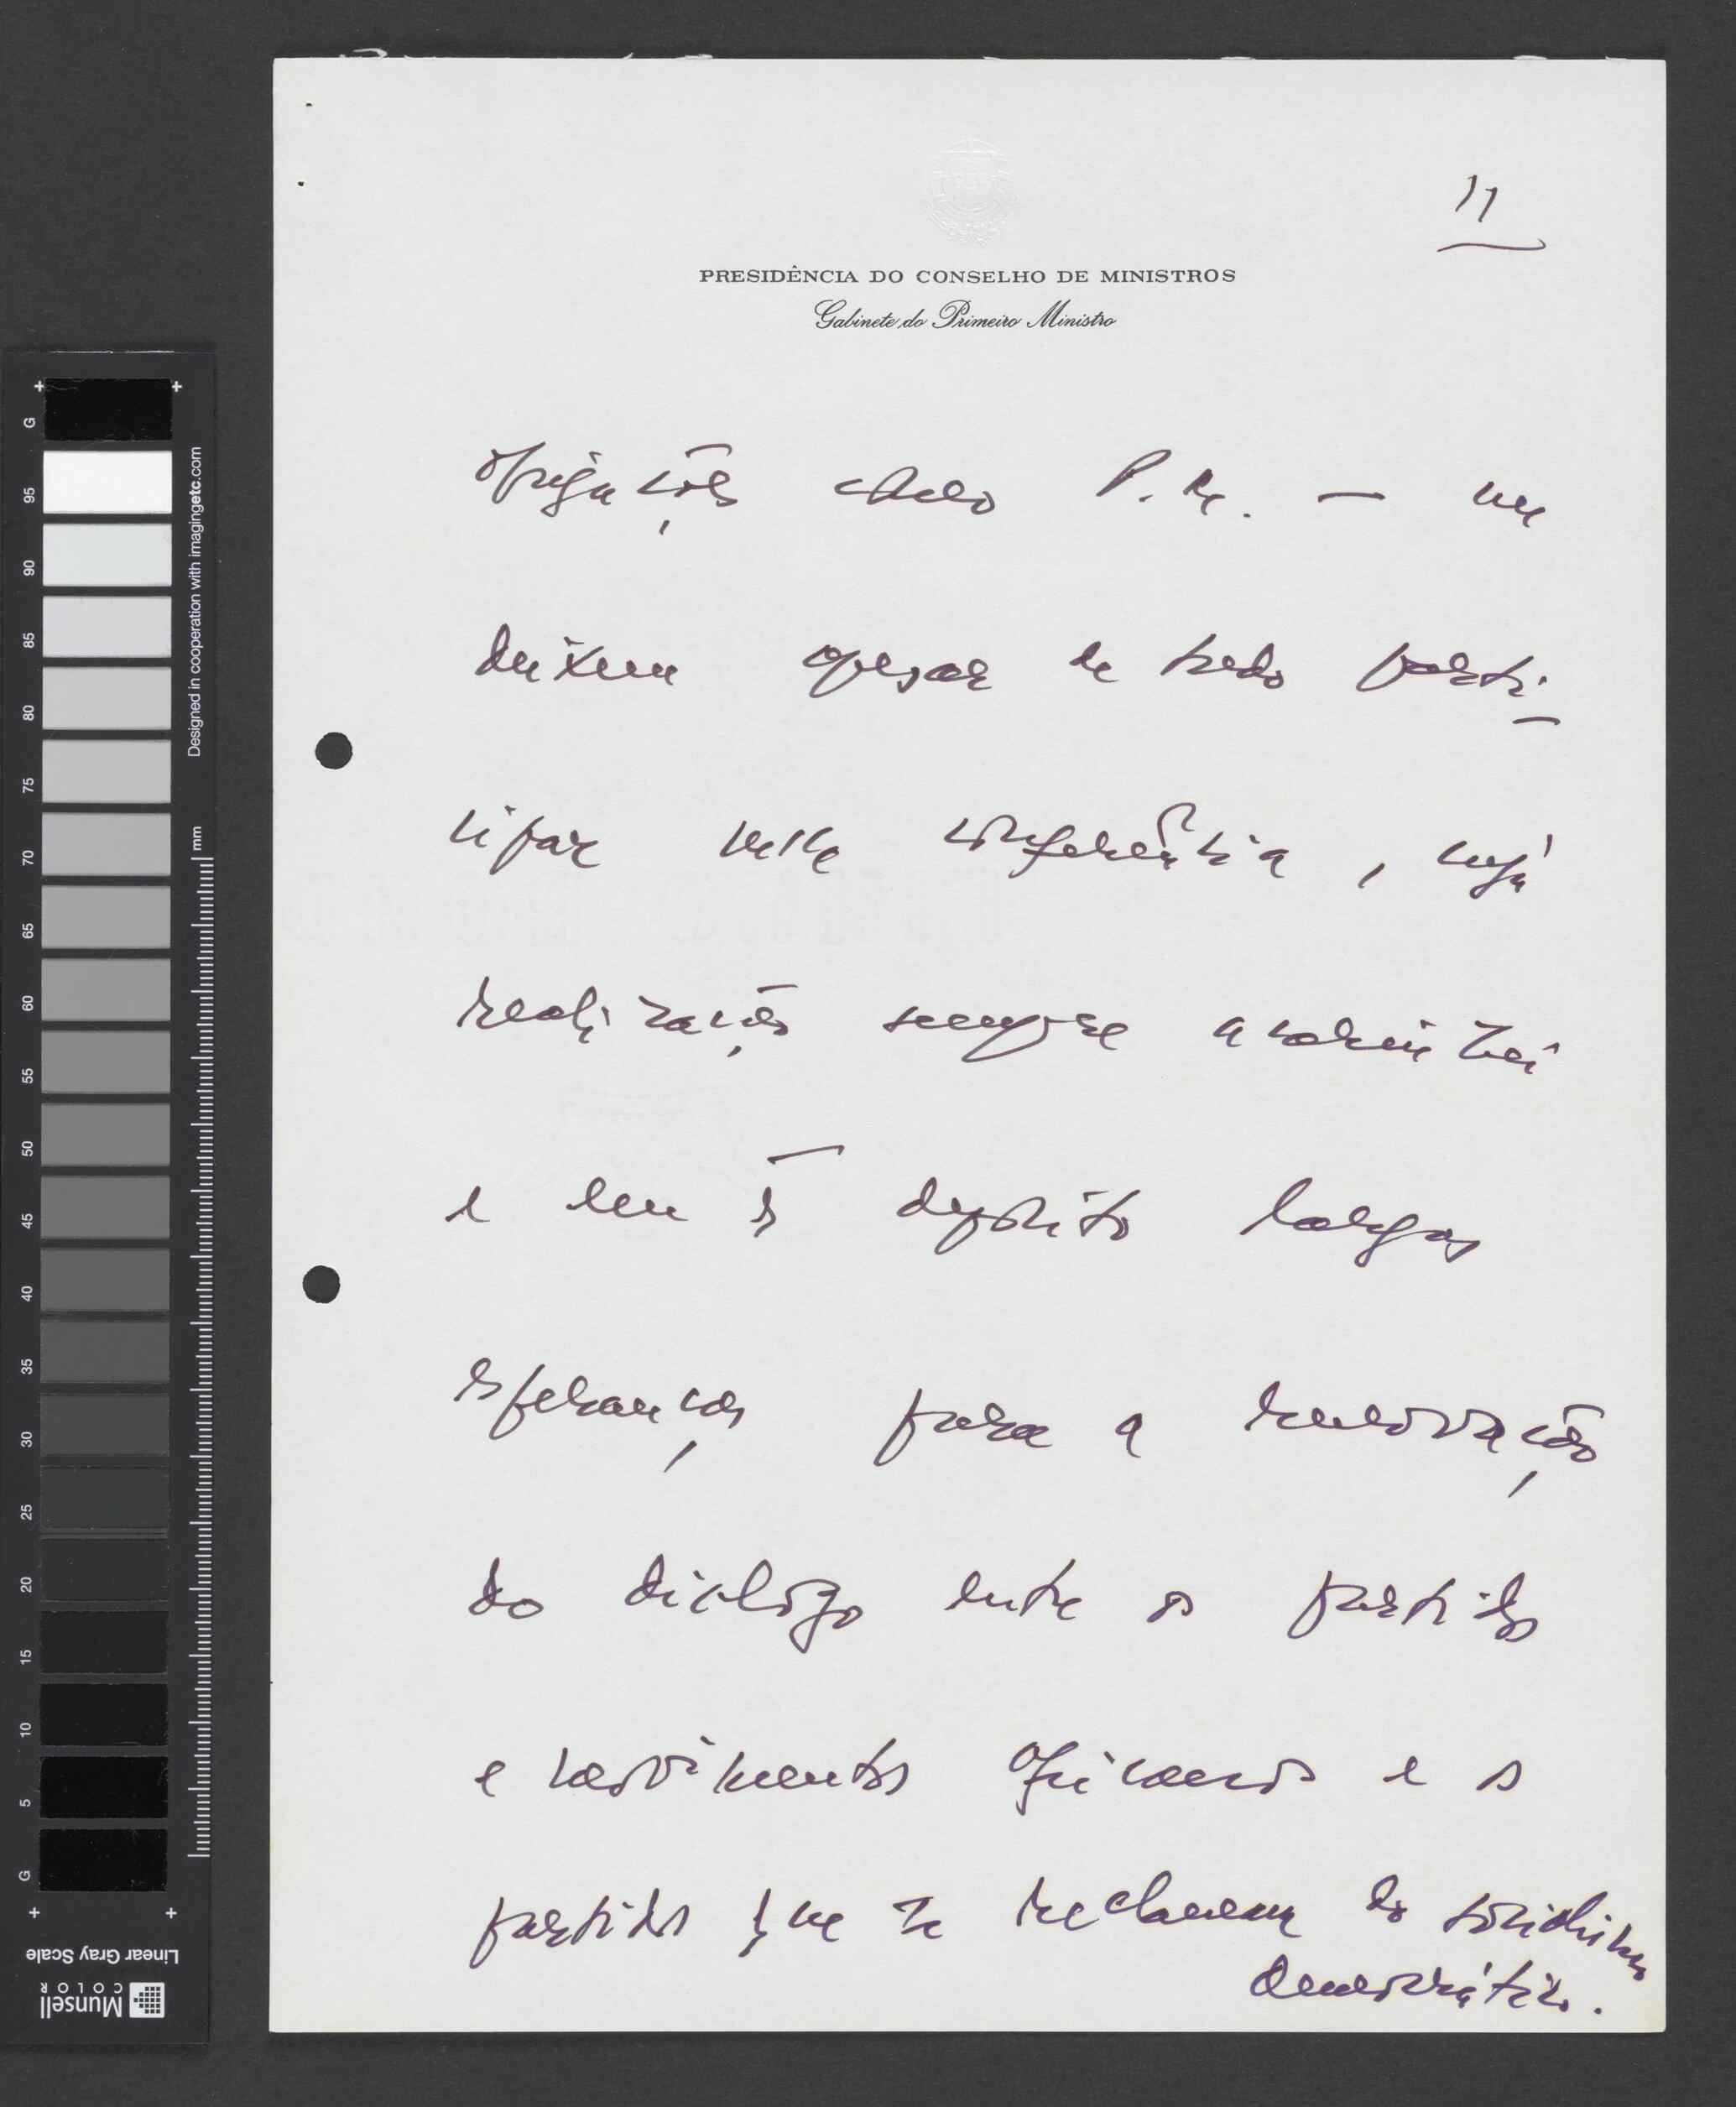 11
PRESIDÊNCIA DO CONSELHO DE MINISTROS
Gabinete do Primeiro Ministro
obrigações como P.M. — me
deixem apesar de tudo parti-
cipar nesta conferência, cuja
realização sempre acarinhei
e em q̃ deposito largas
esperanças para a renovação
do diálogo entre os partidos
e movimentos africanos e os
partidos que se reclamam do socialismo
democrático.
G
95
90
85
80
75
70
65
60
55
50
45
40
35
30
25
20
15
10
5
G
Designed in cooperation with imagingetc.com
mm
Linear Gray Scale
Munsell
COLOR